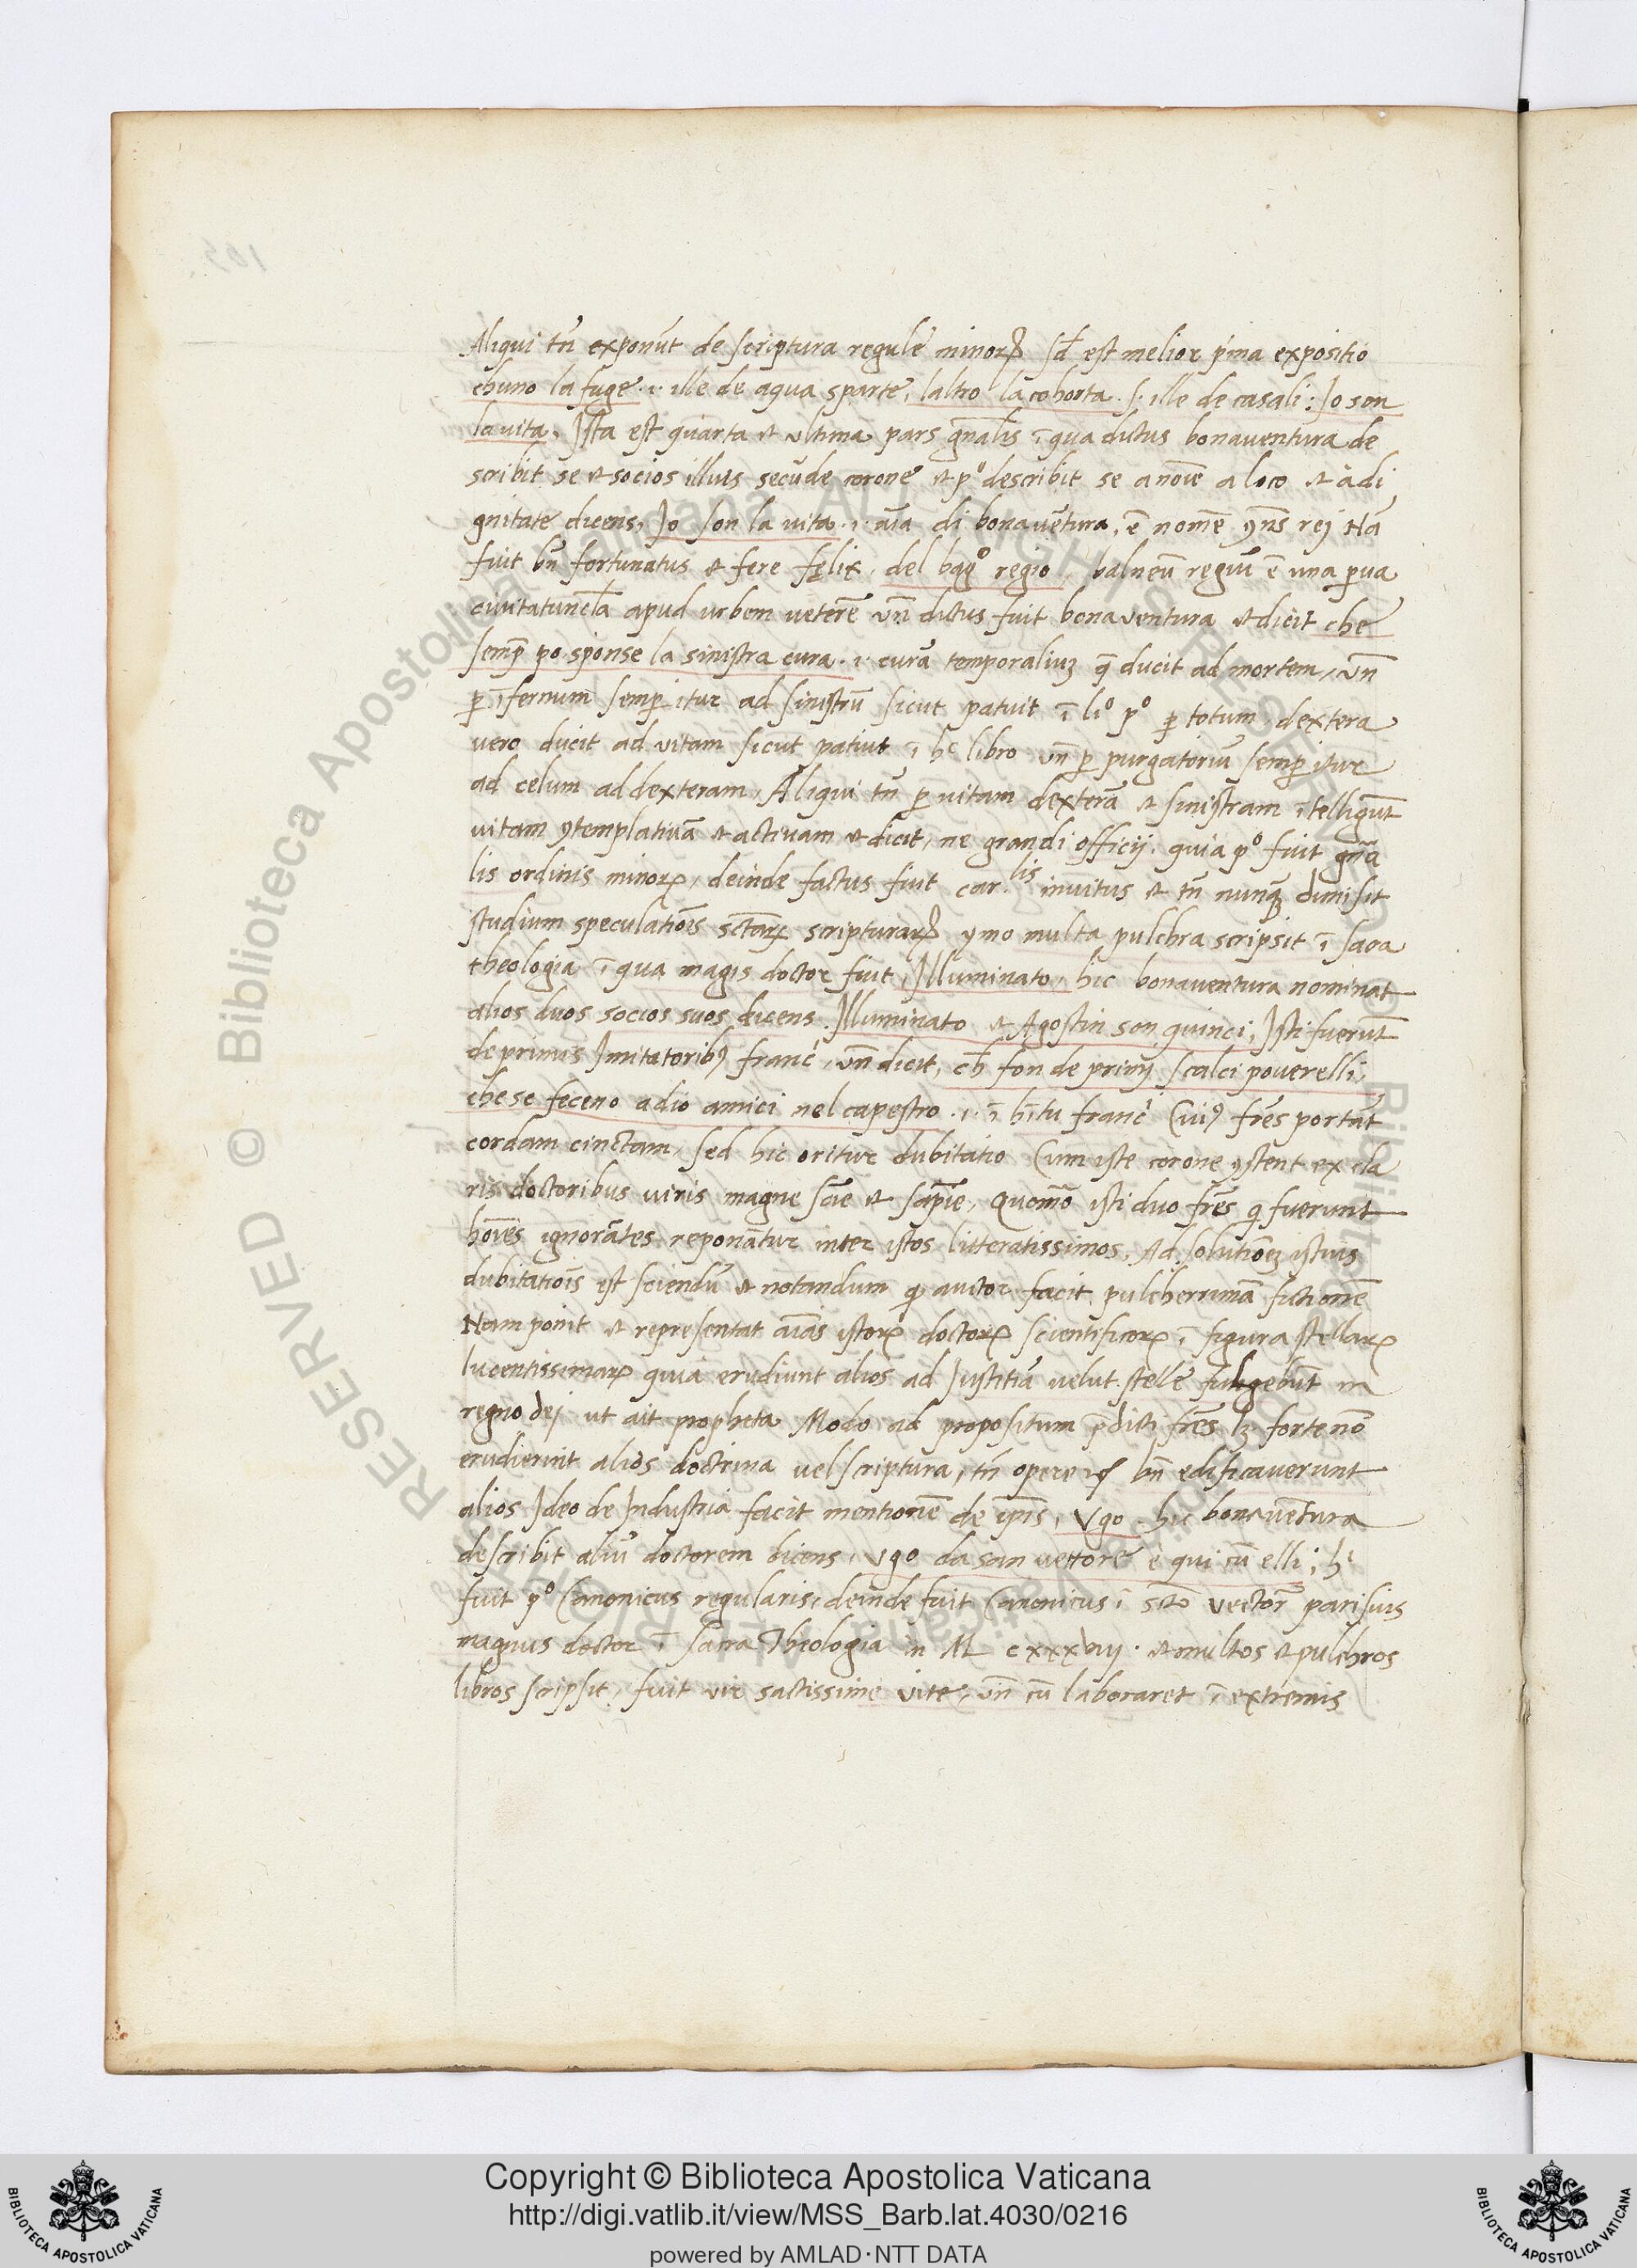 Aliqui tn̄ exponūt de scriptura regule minorꝝ sꝫ est melior p'ma expositio
chuno la fuge .i. ille de aqua sparte, laltro la cohorta .s. ille de casali: Io son
la vita, Ista est quarta et ultima pars gn̄alis ī qua dictus bonaventura de
scribit se et socios illius secūde corone et pº describit se a noīe a loco et a di
gnitate dicens, Io son la vita .i. aīa di bonavētura, ē nomē ꝯn̄s rej Nā
fuit bn̄ fortunatus et fere fęlix, del bagº regio, balneū regiū ē una ꝑua
civitatuncl̄a apud urbem veterē un̄ dictus fuit bonaventura et dicit che
semꝑ posponse la sinistra cura .i. curā temporaliuꝫ q̄ ducit ad mortem, un̄
ꝑ īfernum semꝑ itur ad sinistrū sicut patuit ī liº pº ꝑ totum, dextera
vero ducit ad vitam sicut patiut ī hᶜ libro un̄ ꝑ purgatoriū semꝑ itur
ad celum ad dexteram, Aliqui tn̄ ꝑ vitam dexterā et sinistram ītelligūt
vitam ꝯtemplativā et activam et dicit, ne grandi officij, quia pº fuit gn̄a
lis ordinis minorꝝ, deinde factus fuit car.lis invitus et tn̄ nunqꝫ dimisit
studium speculatiōis sctarꝝ scripturarꝝ ymo multa pulchra scripsit ī saca
theologia ī qua magis doctor fuit, Illuminato, hic bonaventura nominat
alios duos socios suos dicens Illuminato et Agostin son quinci, Isti fuerūt
de primis Imitatoribꝰ franc', un̄ dicit, ch̄ fon de primj scalci poverelli,
che se feceno adio amici nel capestro .i. ī hītu franc' Cuiꝰ frēs portāt
cordam cinctam, sed hic oritur dubitatio Cum iste corone ꝯstent ex cla
ris doctoribus viris magne sc̄ie et sap̄ie, Quomō isti duo frēs q fuerunt
hoīes ignorātes reponātur inter istos litteratissimos, Ad solutiōꝫ istius
dubitatiōis est sciendū et notandum ꝙ auctor facit pulcherrimā fictionē
Nam ponit et representat aīas istorꝝ doctorꝝ scientificorꝝ ī figura stellarꝝ
lucentissimarꝝ quia erudiunt alios ad Iustitiā velut stelle fulgebūt in
regno dej ut ait propheta Modo ad propositum p̄dicti frēs lꝫ forte nō
erudierint alios doctrina vel scriptura, tn̄ opere ip̄o bn̄ edificaverunt
alios Ideo de Industria facit mentionē de ip̄is, Vgo. hic bonavētura
describit aliū doctorem dicens, vgo da san vettore è qui cū elli; hᶜ
fuit pº Canonicus regularis, deinde fuit Canonicus ī scto Vectorᵉ parisius
magnus doctor ī sacra Theologia in M cxxxvij . et multos et pulchros
libros scripsit, fuit vir sactissime vite, un̄ cū laboraret ī extremis
Copyright © Biblioteca Apostolica Vaticana
http://digi.vatlib.it/view/MSS_Barb.lat.4030/0216
powered by AMLAD·NTT DATA
BIBLIOTECA APOSTOLICA VATICANA
BIBLIOTECA APOSTOLICA VATICANA